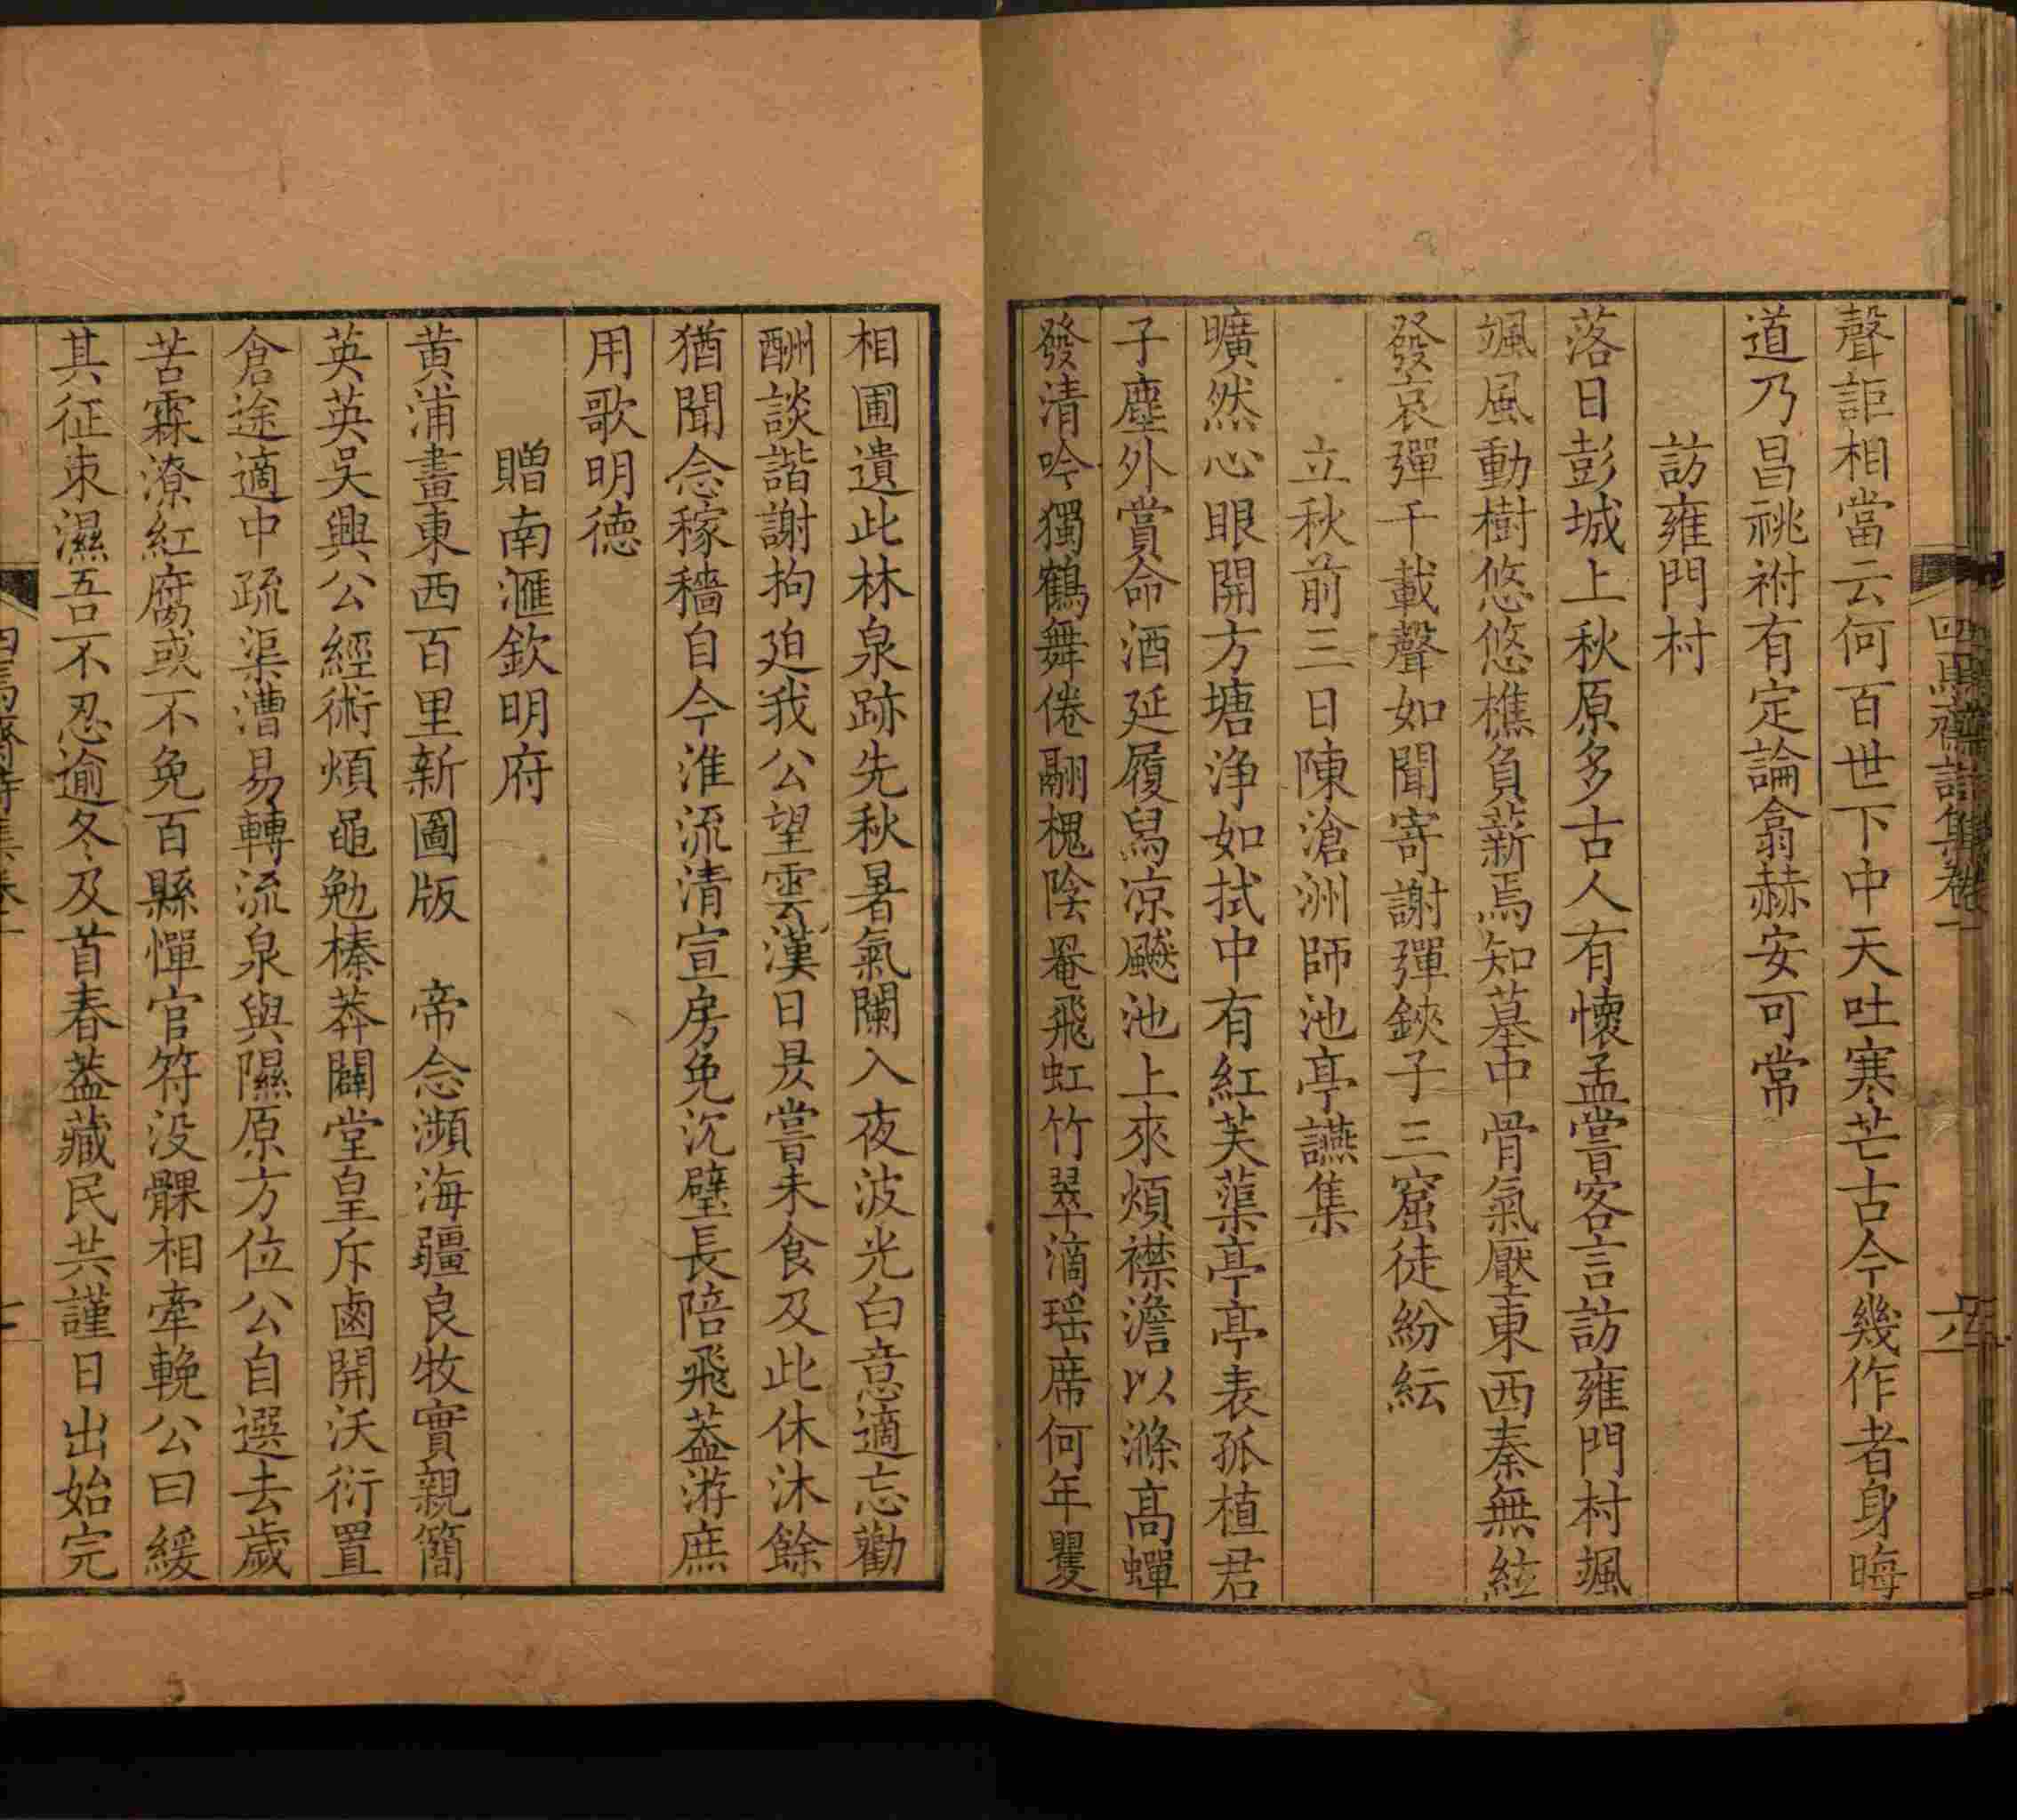 聲詎相當云何百世下中天吐寒芒古今幾作者身晦
道乃昌祧祔有定論翕赫安可常
訪雍門村
落日彭城上秋原多古人有懷孟嘗客言訪雍門村颯
颯風動樹悠悠樵負薪焉知墓中骨氣壓東西秦無絃
發哀彈千載聲如聞寄謝彈鋏子三窟徒紛紜
立秋前三日陳滄洲師池亭讌集
曠然心眼開方塘浄如拭中有紅芙蕖亭亭表孤植君
子塵外賞命酒延履舄凉飇池上來煩襟澹以滌高蟬
發清吟獨鶴舞倦翮槐陰罨飛虹竹翠滴瑶席何年瞿
相圃遺此林泉跡先秋暑氣闌入夜波光白意適忘勸
酬談諧謝拘迫我公望雲漢日昃嘗未食及此休沐餘
猶聞念稼穡自今淮流清宣房免沉璧長陪飛葢游庶
用歌明德
贈南滙欽明府
黄浦畫東西百里新圖版　帝念瀕海疆良牧實親簡
英英吳興公經術煩黽勉榛莽闢堂皇斥鹵開沃衍置
倉途適中疏渠漕易轉流泉與隰原方位公自選去歲
苦霖潦紅腐或不免百縣憚官符没髁相牽輓公曰緩
其征朿濕吾不忍逾冬及首春葢藏民共謹日出始完